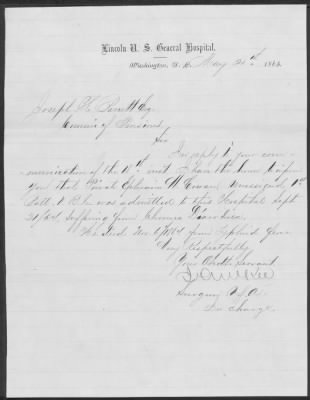 Lincoln U. S. General Hospital.
Washington, D. C. May 20th 1865.
Joseph H. Barrett Esq
Commr of Pensions
Sir
In reply to your com-
munication of the 17th inst. I have the honor to inform
you that Privt Ephraim W. Unassigned, 1st
Batt. V. R. C. was admitted to this Hospital Sept
21/64, suffering from Chronic Diarrhoea.
He died Nov 6/64 from Typhoid fever
Very Respectfully
Your Obedt Servant
J. C. McKee
Surgeon U.S.A.
In charge.